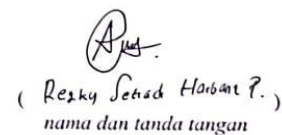 ( Rezky Setiadi Harbani P. )
nama dan tanda tangan